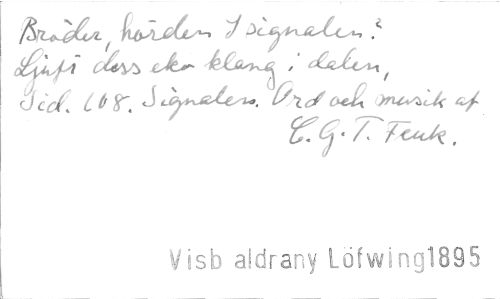 Bröder, hörden I signalen?
Ljuft dess eko klang i dalen,
Sid. 108. Signalen. Ord och musik af
C. G. T. Fenk.
Visb aldrany Löfwing1895